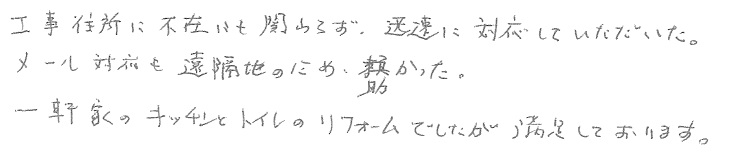 工事住所に不在にも関わらず、迅速に対応していただいた。
メール対応も遠隔地のため、助かった。
一軒家のキッチンとトイレのリフォームでしたが満足しております。